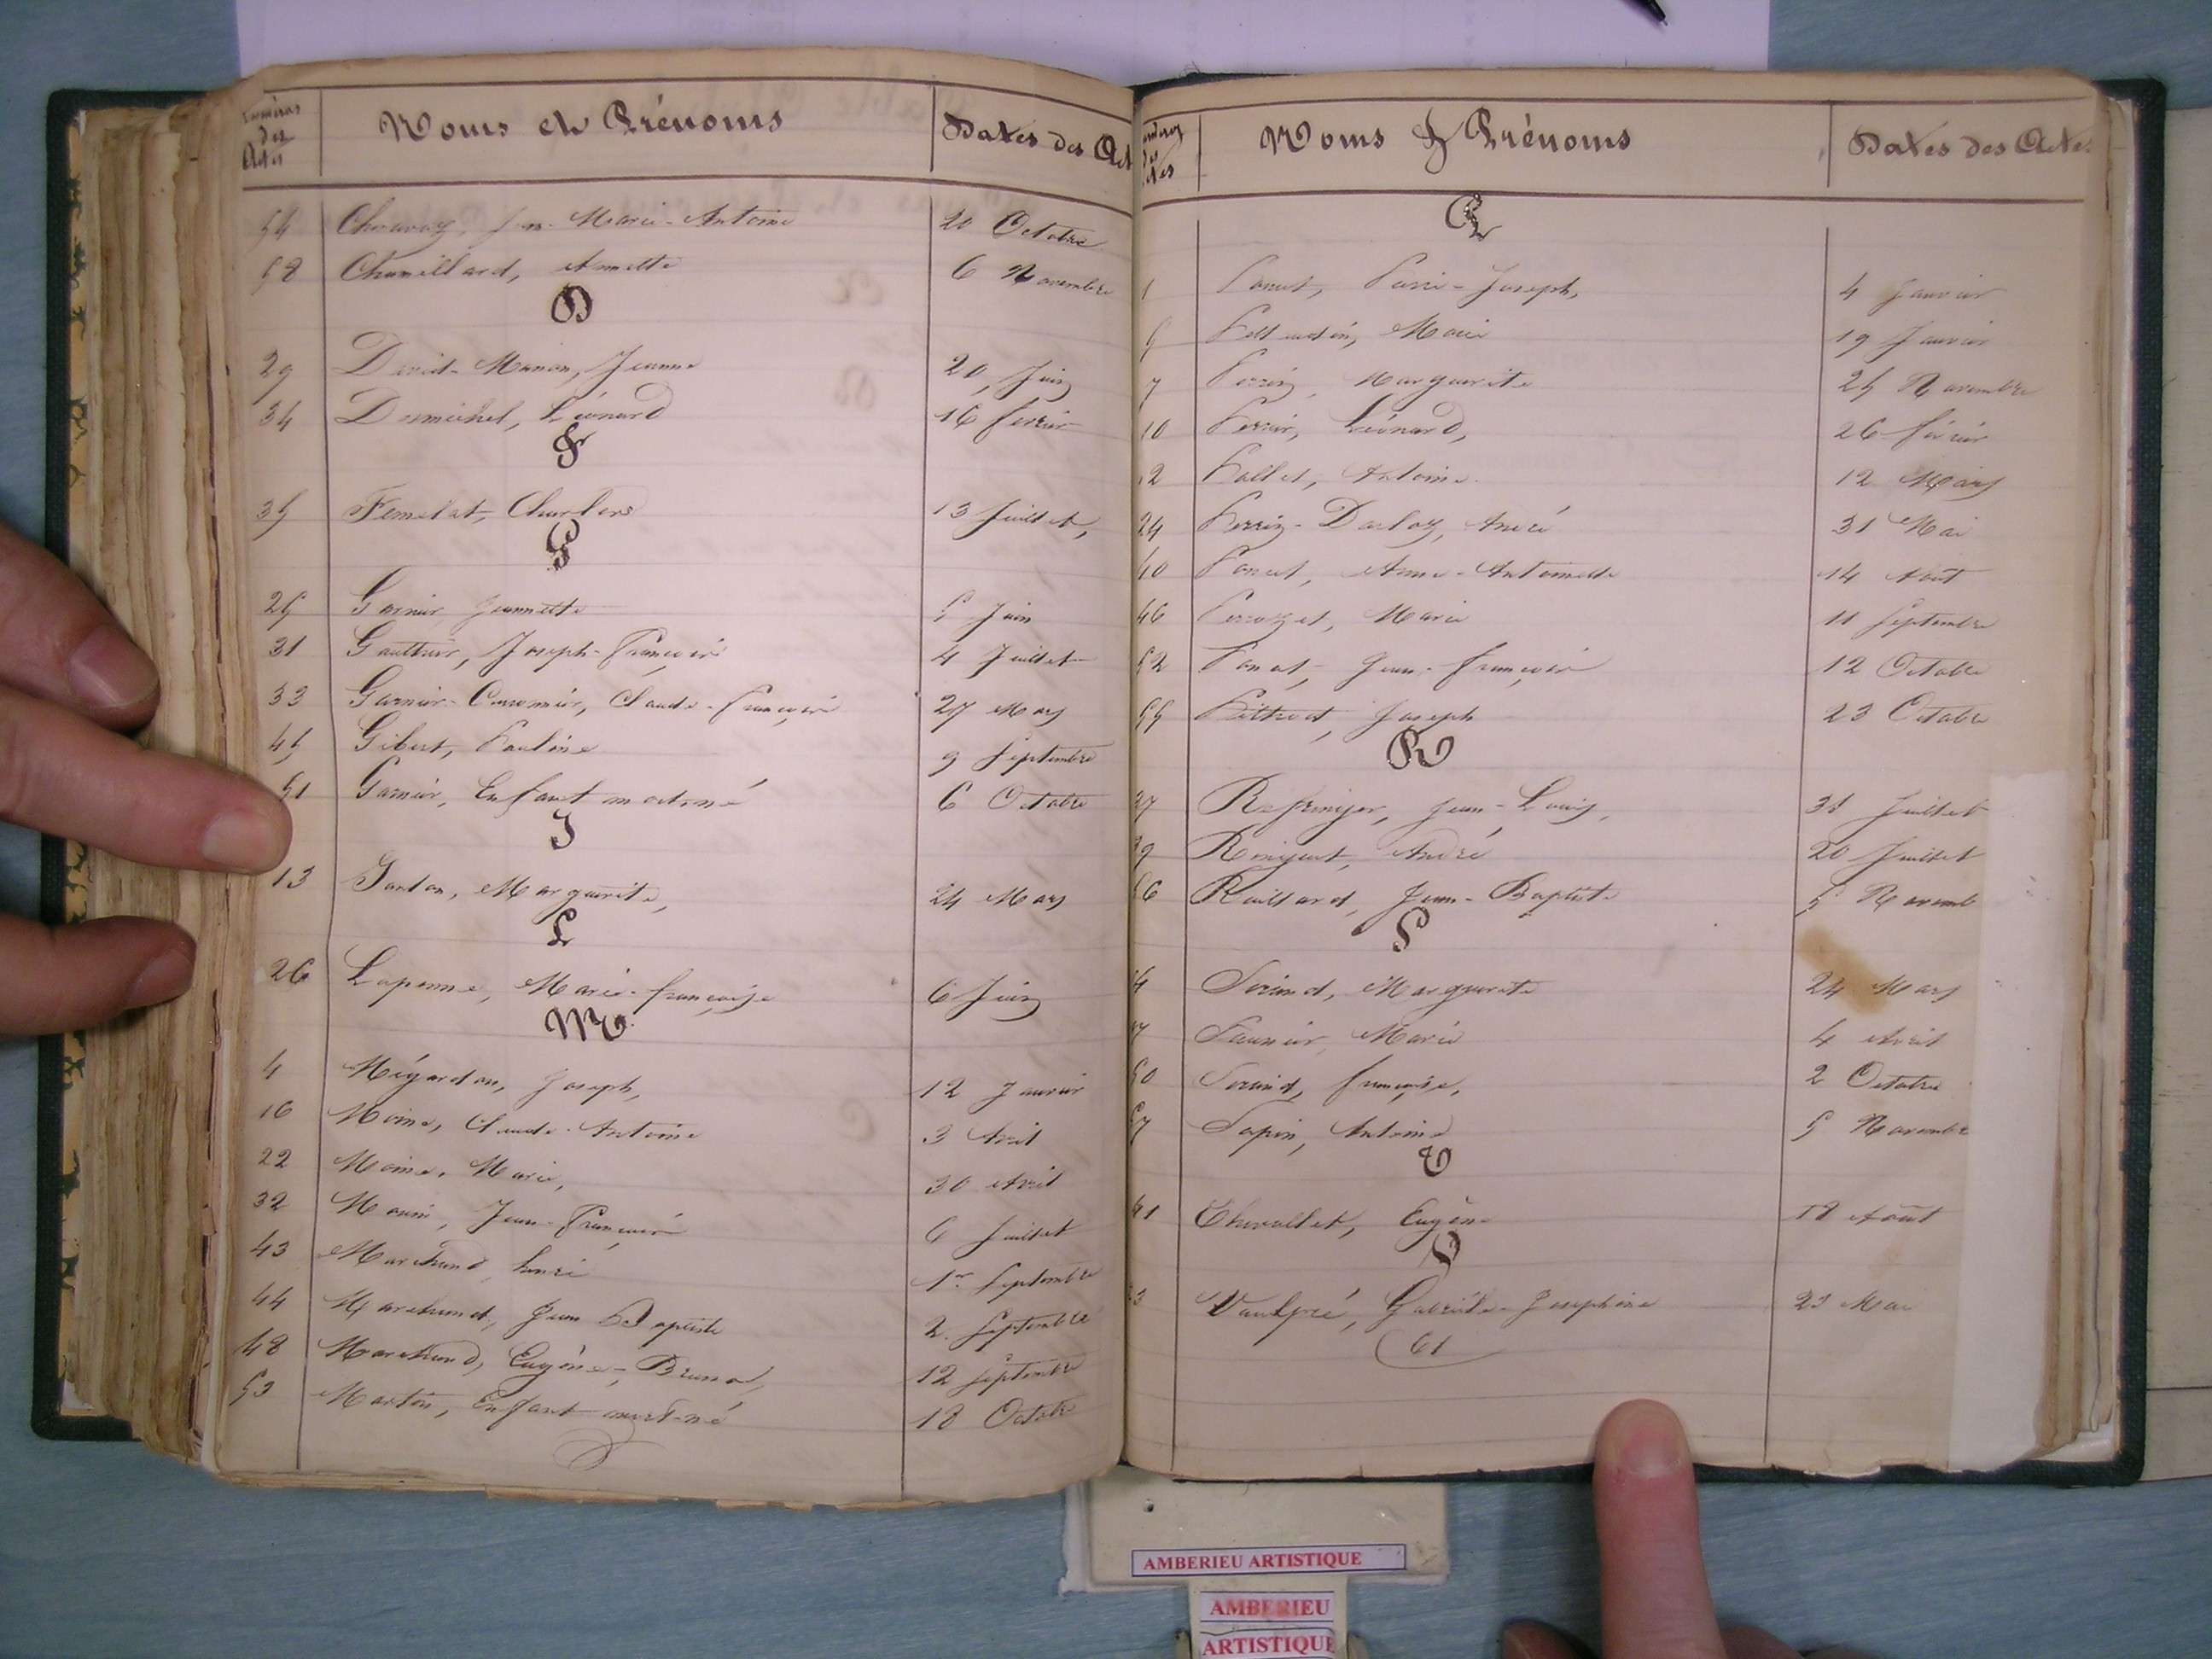 Numéros des Actes | Noms et Prénoms | Dates des Act
54 Jn. Marie-Antoine 20 Octobre
58 Chamillard, Annette 6 Novembre
D
29 David-Manon, Jeanne 20 Juin
34 Desmichel, Léonard 16 février
F
35 Femelat, Charles 13 Juillet,
G
25 Garnier Jeannette 5 Juin
31 Gauthier, Joseph-François 4 Juillet
33 Garnier- Claude-François 27 Mars
45 Gibert, Pauline 9 Septembre
51 Garnier, Enfant mort né 6 Octobre
J
13 Janton, Marguerite, 24 Mars
L
26 Laponne, Marie-françoise 6 Juin
M
4 Mégardon, Joseph, 12 Janvier
16 Moine, Claude-Antoine 3 Avril
22 Moine, Marie, 30 Avril
32 Jean-François 6 Juillet
43 Marchand, henri 1er Septembre
44 Marchand, Jean Baptiste 2 Septembre
48 Marchand, Eugène-Bruno, 12 Septembre
53 Martin, Enfant mort-né 18 Octobre
Noms & Prénoms | Dates des Actes
P
1 Ponat, Pierre-Joseph, 4 Janvier
5 Marie 19 Janvier
7 Perrin, Marguerite 25 Novembre
10 Perrier, Léonard, 26 février
12 Pallet, Antoine 12 Mars
24 Perrin-Darloz, André 31 Mai
40 Anne-Antoinette 14 Août
46 Perrozet, Marie 11 Septembre
52 Jean-françois 12 Octobre
55 Joseph 23 Octobre
R
37 Jean-Louis, 31 Juillet
39 André 20 Juillet
56 Ruillard, Jean-Baptiste 5 Novemb
S
4 Sérind, Marguerite 24 Mars
7 Saunier, Marie 4 Avril
50 Sérind, françoise, 2 Octobre
57 Sapin, Antoine 5 Novembr
T
41 Thevollet, Eugène 18 Août
V
23 Vaulpré, Gabrièle-Josephine 23 Mai
61
AMBERIEU ARTISTIQUE
AMBERIEU
ARTISTIQUE